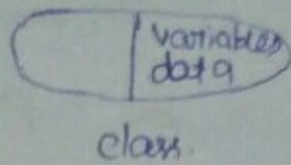 variables
data
class.